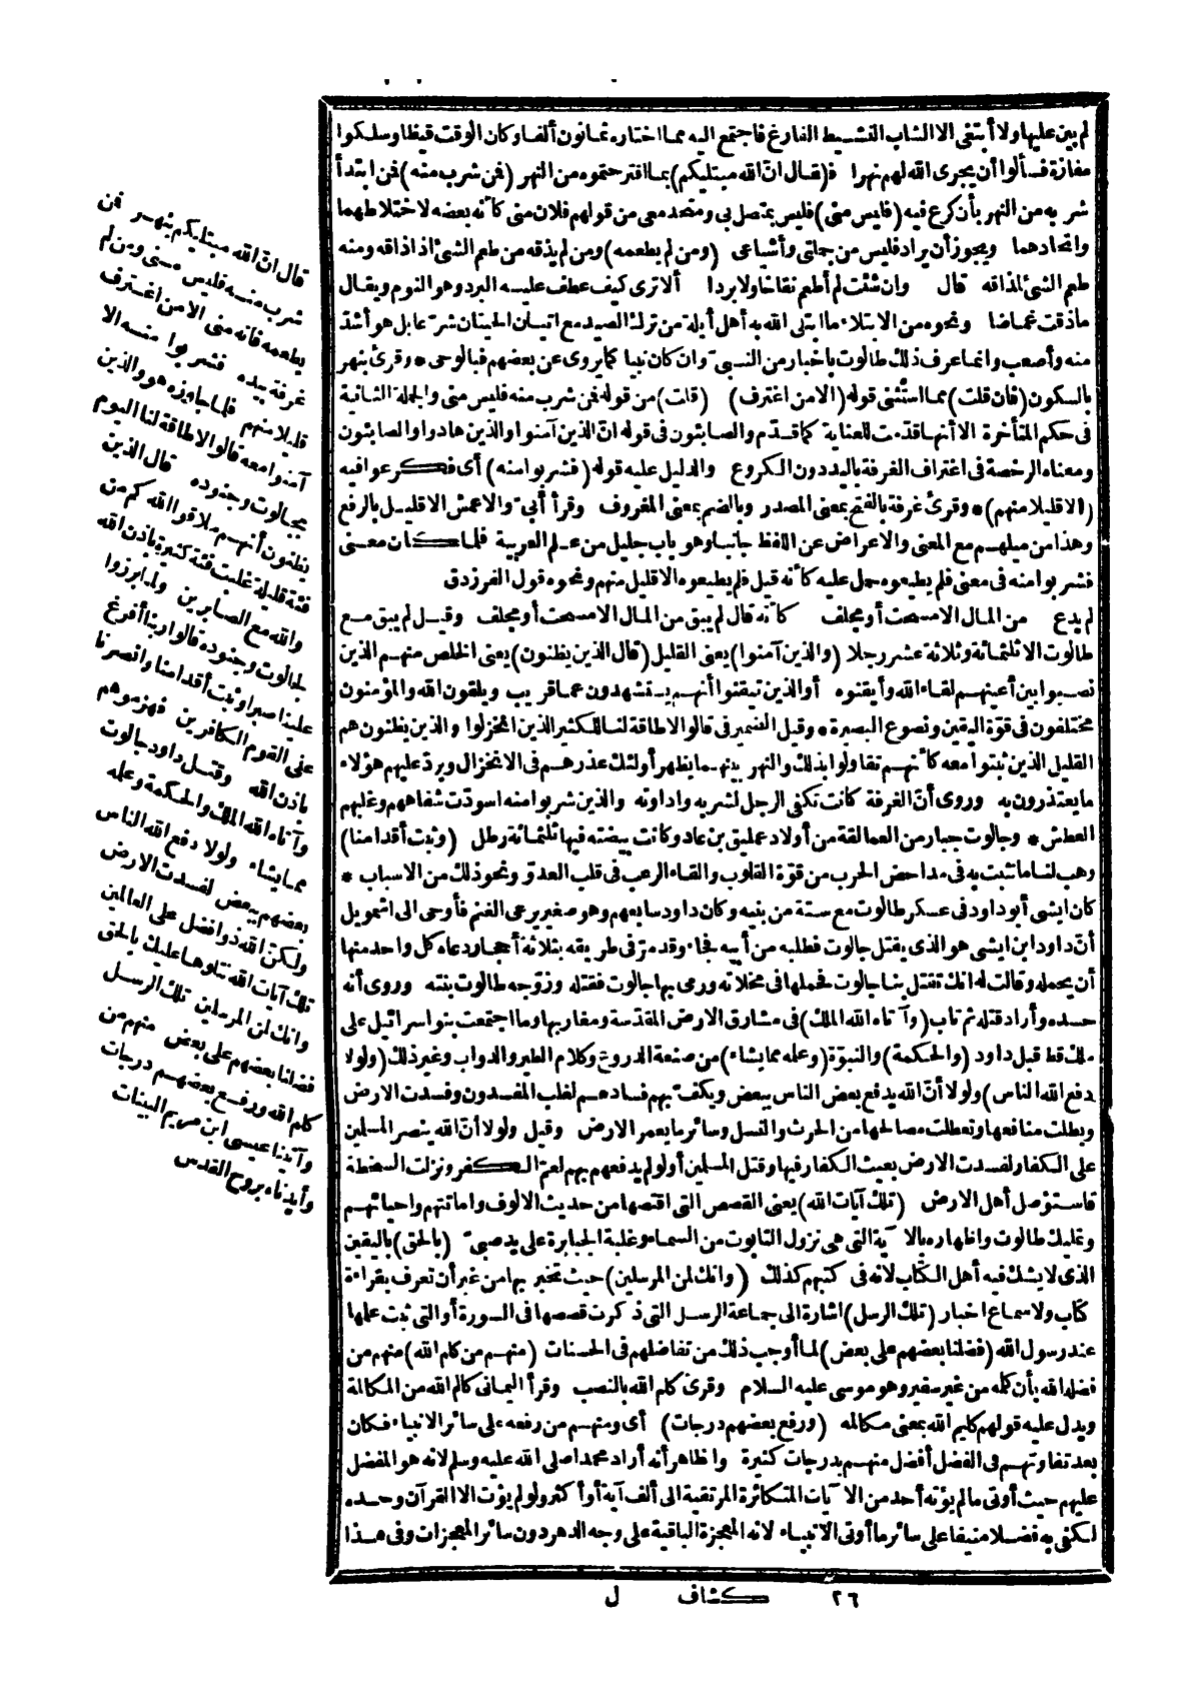 لم يبن عليها ولا أبتغى الا الشاب النشيط الفارغ فاجتمع اليه مما اختاره ثمانون ألفا وكان الوقت قيظا وسلكوا
مفازة فسألوا أن يجرى الله لهم نهرا ف(قال ان الله مبتليكم) بما اقترحتموه من النهر (فمن شرب منه) فمن ابتدأ
شربه من النهر بأن كرع فيه (فليس منى) فليس بمتصل بى ومتحد معى من قولهم فلان منى كأنه بعضه لاختلاطهما
واتحادهما ويجوز أن يراد فليس من جملتى وأشياعى (ومن لم يطعمه) ومن لم يذقه من طعم الشئ اذا ذاقه ومنه
طعم الشئ لمذاقه قال وان شئت لم أطعم نقاخا ولا بردا ألا ترى كيف عطف عليه البرد وهو النوم ويقال
ماذقت غماضا ونحوه من الابتلاء ما ابتلى الله به أهل أيلة من ترك الصيد مع اتيان الحيتان شرعا بل هو أشد
منه وأصعب وانما عرف ذلك طالوت باخبار من النبىّ وان كان نبيا كما يروى عن بعضهم فبالوحى * وقرئ بنهر
بالسكون (فان قلت) مما استثنى قوله (الا من اغترف) (قلت) من قوله فمن شرب منه فليس منى والجملة الثانية
فى حكم المتأخرة الا أنها قدّمت للعناية كما قدّم والصابئون فى قوله انّ الذين آمنوا والذين هادوا والصابئون
ومعناه الرخصة فى اغتراف الغرفة باليد دون الكروع والدليل عليه قوله (فشربوا منه) أى فكرعوا فيه
(الا قليلا منهم) * وقرئ غرفة بالفتح بمعنى المصدر وبالضم بمعنى المغروف وقرأ أبىّ والاعمش الا قليل بالرفع
وهذا من ميلهم مع المعنى والاعراض عن اللفظ جانبا وهو باب جليل من علم العربية فلما كان معنى
فشربوا منه فى معنى فلم يطيعوه حمل عليه كأنه قيل فلم يطيعوه الا قليل منهم ونحوه قول الفرزدق
لم يدع من المال الا مسحت أو مجلف كأنه قال لم يبق من المال الا مسحت أو مجلف وقيل لم يبق مع
طالوت الا ثلثمائة وثلاثة عشر رجلا (والذين آمنوا) يعنى القليل (قال الذين يظنون) يعنى الخلص منهم الذين
نصبوا بين أعينهم لقاء الله وأيقنوه أو الذين تيقنوا أنهم يستشهدون عما قريب ويلقون الله والمؤمنون
مختلفون فى قوة اليقين ونصوع البصيرة * وقيل الضمير فى قالوا لا طاقة لنا للكثير الذين انخزلوا والذين يظنون هم
القليل الذين ثبتوا معه كأنهم تقاولوا بذلك والنهر بينهما يظهر أولئك عذرهم فى الانخزال ويردّ عليهم هؤلاء
ما يعتذرون به وروى أنّ الغرفة كانت تكفى الرجل لشربه واداوته والذين شربوا منه اسودّت شفاههم وغلبهم
العطش * وجالوت جبار من العمالقة من أولاد عمليق بن عاد وكانت بيضته فيها ثلثمائة رطل (وثبت أقدامنا)
وهب لنا ما نثبت به فى مداحض الحرب من قوّة القلوب والقاء الرعب فى قلب العدوّ ونحو ذلك من الاسباب *
كان ايشى أبو داود فى عسكر طالوت مع ستة من بنيه وكان داود سابعهم وهو صغير يرعى الغنم فأوحى الى اشمويل
أنّ داود ابن ايشى هو الذى يقتل جالوت فطلبه من أبيه فجاء وقد مرّ فى طريقه بثلاثة أحجار دعاه كل واحد منها
أن يحمله وقالت له انك تقتل بنا جالوت فحملها فى مخلاته ورمى بها جالوت فقتله وزوّجه طالوت بنته وروى أنه
حسده وأراد قتله ثم تاب (وآتاه الله الملك) فى مشارق الارض المقدسة ومغاربها وما اجتمعت بنو اسرائيل على
ملك قط قبل داود (والحكمة) والنبوّة (وعلمه مما يشاء) من صنعة الدروع وكلام الطير والدواب وغير ذلك (ولولا
دفع الله الناس) ولولا أنّ الله يدفع بعض الناس ببعض ويكفّ بهم فسادهم لغلب المفسدون وفسدت الارض
وبطلت منافعها وتعطلت مصالحها من الحرث والنسل وسائر ما يعمر الارض وقيل ولولا أنّ الله ينصر المسلمين
على الكفار لفسدت الارض بعيث الكفار فيها وقتل المسلمين أو لو لم يدفعهم بهم لعمّ الكفر ونزلت السخطة
فاستؤصل أهل الارض (تلك آيات الله) يعنى القصص التى اقتصها من حديث الالوف واماتتهم واحيائهم
وتمليك طالوت واظهاره بالآية التى هى نزول التابوت من السماء وغلبة الجبابرة على يد صبىّ (بالحق) باليقين
الذى لا يشك فيه أهل الكتاب لانه فى كتبهم كذلك (وانك لمن المرسلين) حيث تخبر بها من غير أن تعرف بقراءة
كتاب ولا سماع اخبار (تلك الرسل) اشارة الى جماعة الرسل التى ذكرت قصصها فى السورة أو التى ثبت علمها
عند رسول الله (فضلنا بعضهم على بعض) لما أوجب ذلك من تفاضلهم فى الحسنات (منهم من كلم الله) منهم من
فضله الله بأن كلمه من غير سفير وهو موسى عليه السلام وقرئ كلم الله بالنصب وقرأ اليمانى كالم الله من المكالمة
ويدل عليه قولهم كليم الله بمعنى مكالمه (ورفع بعضهم درجات) أى ومنهم من رفعه على سائر الانبياء فكان
بعد تفاوتهم فى الفضل أفضل منهم بدرجات كثيرة والظاهر أنه أراد محمدا صلى الله عليه وسلم لانه هو المفضل
عليهم حيث أوتى ما لم يؤته أحد من الآيات المتكاثرة المرتقية الى ألف آية أو أكثر ولو لم يؤت الا القرآن وحده
لكفى به فضلا منيفا على سائر ما أوتى الانبياء لانه المعجزة الباقية على وجه الدهر دون سائر المعجزات وفى هذا
قال ان الله مبتليكم بنهر فمن
شرب منه فليس منى ومن لم
يطعمه فانه منى الا من اغترف
غرفة بيده فشربوا منه الا
قليلا منهم فلما جاوزه هو والذين
آمنوا معه قالوا لا طاقة لنا اليوم
بجالوت وجنوده قال الذين
يظنون أنهم ملاقوا الله كم من
فئة قليلة غلبت فئة كثيرة باذن الله
والله مع الصابرين ولما برزوا
لجالوت وجنوده قالوا ربنا أفرغ
علينا صبرا وثبت أقدامنا وانصرنا
على القوم الكافرين فهزموهم
باذن الله وقتل داود جالوت
وآتاه الله الملك والحكمة وعلمه
مما يشاء ولولا دفع الله الناس
بعضهم ببعض لفسدت الارض
ولكن الله ذو فضل على العالمين
تلك آيات الله نتلوها عليك بالحق
وانك لمن المرسلين تلك الرسل
فضلنا بعضهم على بعض منهم من
كلم الله ورفع بعضهم درجات
وآتينا عيسى ابن مريم البينات
وأيدناه بروح القدس
٢٦ كشاف ل